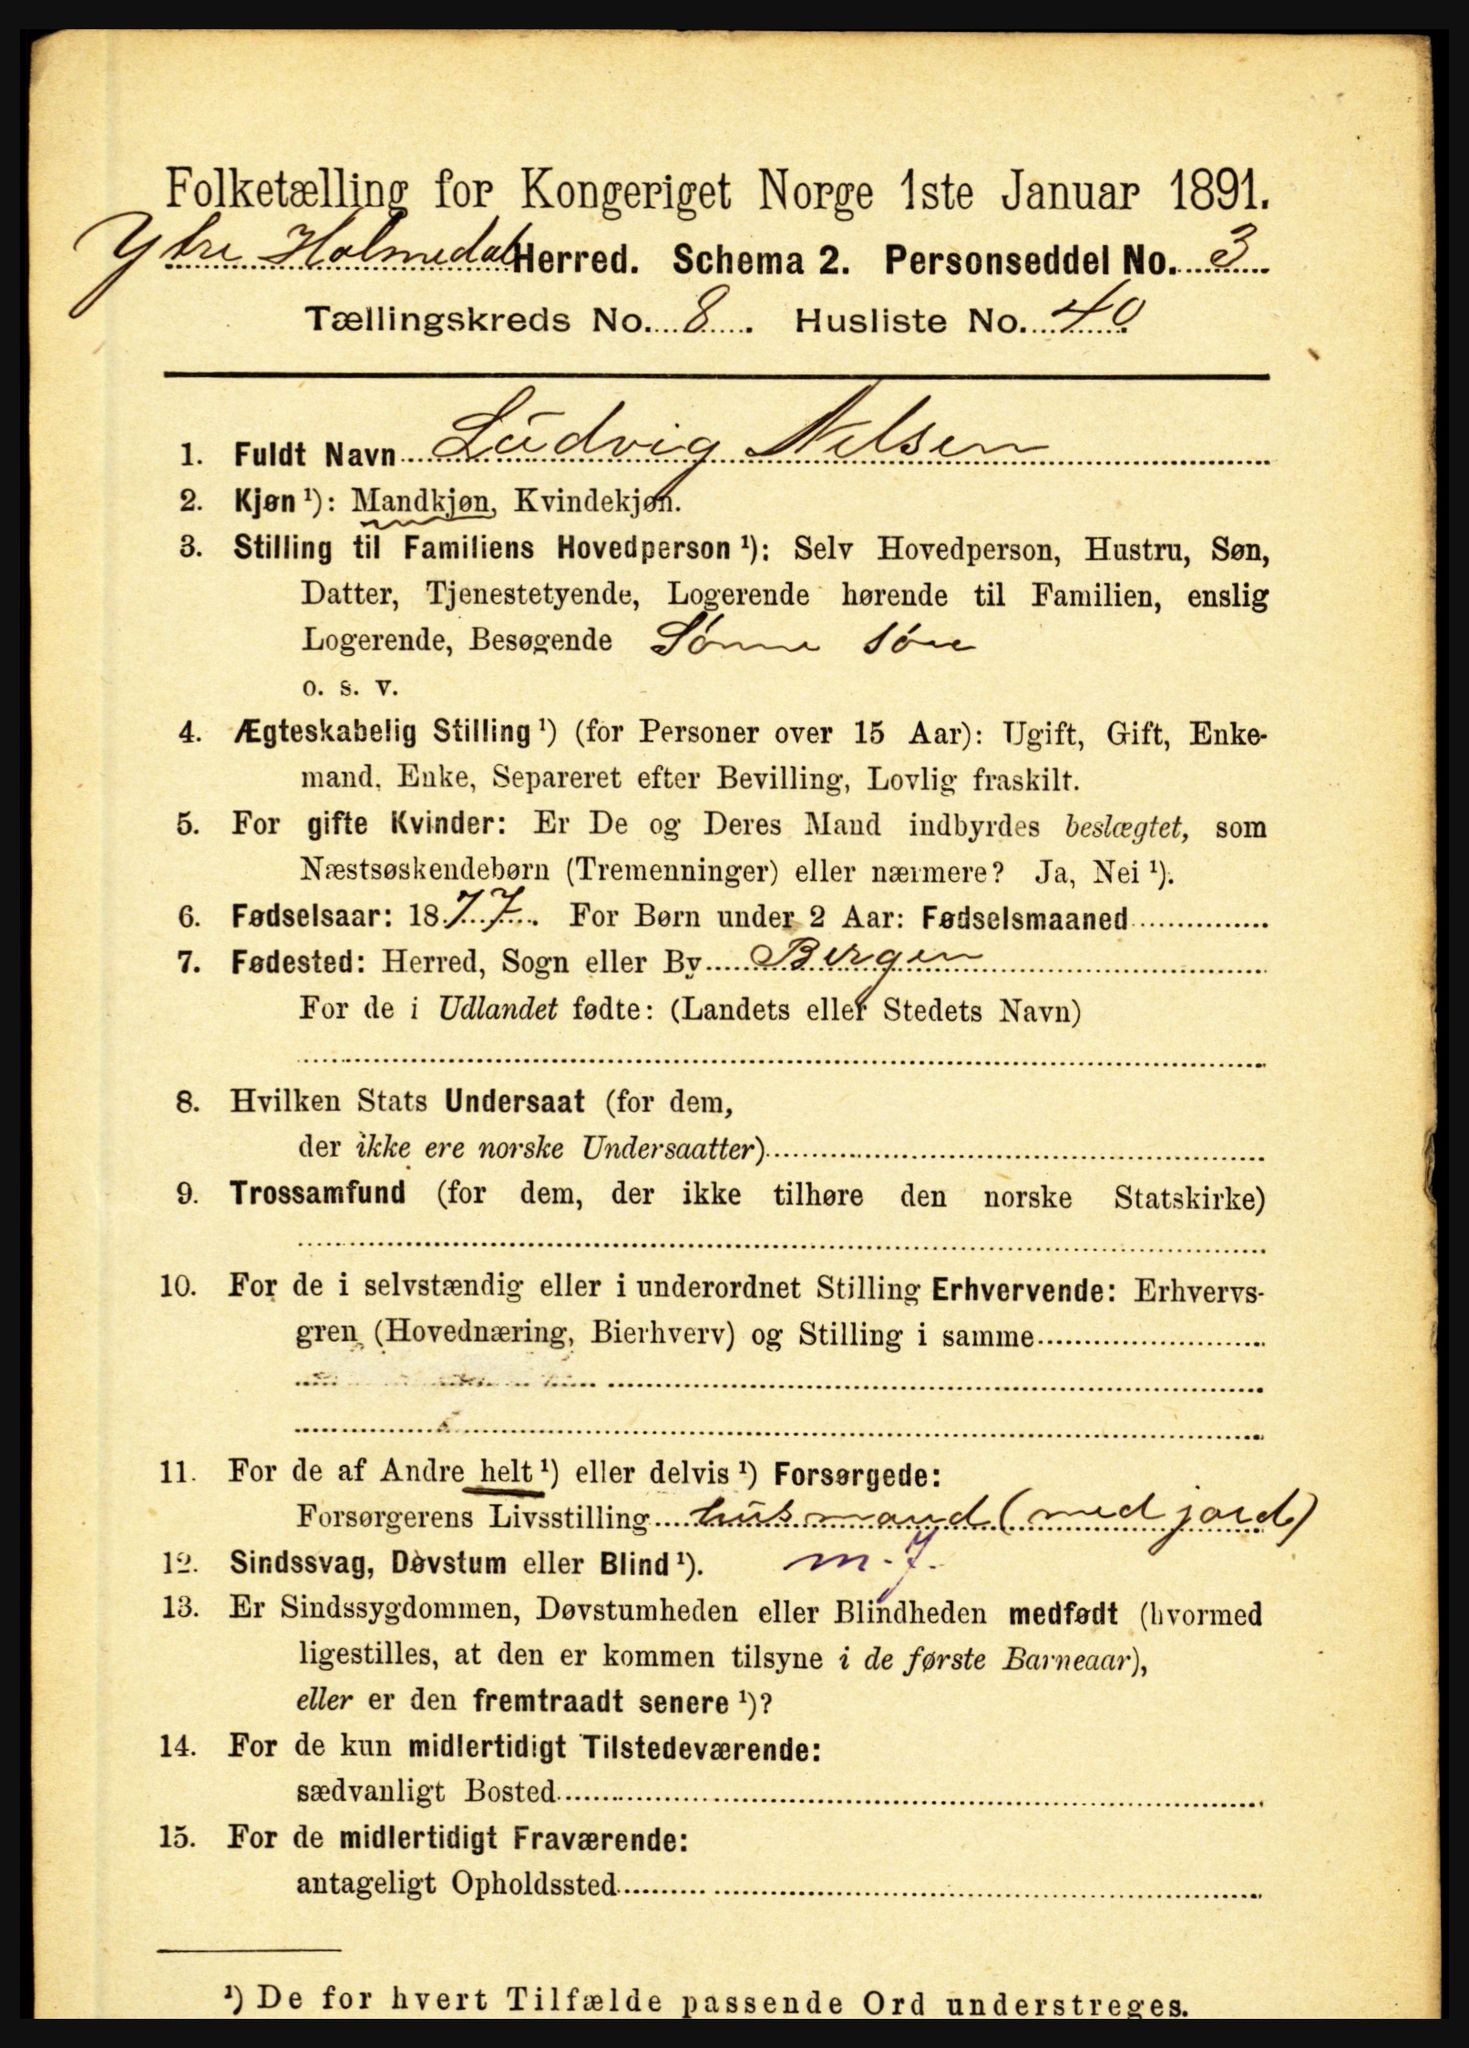 Folketælling for Kongeriget Norge 1ste Januar 1891.
Ytre Holmedal Herred. Schema 2. Personseddel No. 3
Tællingskreds No. 8. Husliste No. 40
1. Fuldt Navn Ludvig Nelsen
2. Kjøn ¹): Mandkjøn, Kvindekjøn.
3. Stilling til Familiens Hovedperson ¹): Selv Hovedperson, Hustru, Søn,
Datter, Tjenestetyende, Logerende hørende til Familien, enslig
Logerende, Besøgende Sønne Søn
o. s. v.
4. Ægteskabelig Stilling ¹) (for Personer over 15 Aar): Ugift, Gift, Enke-
mand, Enke, Separeret efter Bevilling, Lovlig fraskilt.
5. For gifte Kvinder: Er De og Deres Mand indbyrdes beslægtet, som
Næstsøskendebørn (Tremenninger) eller nærmere? Ja, Nei ¹).
6. Fødselsaar: 1877. For Børn under 2 Aar: Fødselsmaaned
7. Fødested: Herred, Sogn eller By Bergen
For de i Udlandet fødte: (Landets eller Stedets Navn)
8. Hvilken Stats Undersaat (for dem,
der ikke ere norske Undersaatter)
9. Trossamfund (for dem, der ikke tilhøre den norske Statskirke)
10. For de i selvstændig eller i underordnet Stilling Erhvervende: Erhvervs-
gren (Hovednæring, Bierhverv) og Stilling i samme
11. For de af Andre helt ¹) eller delvis ¹) Forsørgede:
Forsørgerens Livsstilling husmand (med jord)
12. Sindssvag, Døvstum eller Blind ¹). m. J.
13. Er Sindssygdommen, Døvstumheden eller Blindheden medfødt (hvormed
ligestilles, at den er kommen tilsyne i de første Barneaar),
eller er den fremtraadt senere ¹)?
14. For de kun midlertidigt Tilstedeværende:
sædvanligt Bosted
15. For de midlertidigt Fraværende:
antageligt Opholdssted
¹) De for hvert Tilfælde passende Ord understreges.